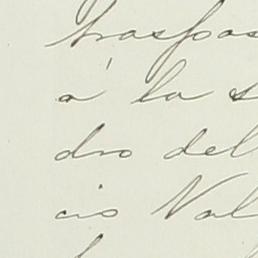 traspas
á la s
dro del
cio Val